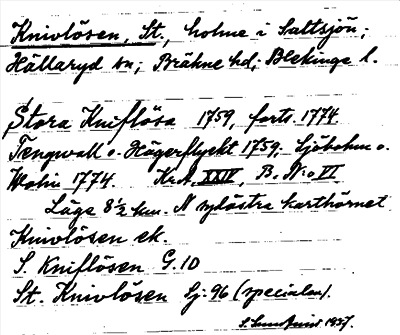 Knivlösen, St., holme i Saltsjön;
Hällaryd sn; Bräkne hd; Blekinge l.
Stora Kniflösa 1759, forts. 1774.
Tengwall o. Högerflycht 1759; Sjöbohm o.
Wohn 1774. Kr.A. XXIV, B. N:o VI
Läge 8 ½ km. N sydöstra karthörnet
Knivlösen ek.
S. Kniflösen G.10
St. Knivlösen Sj: 96 (specialen).
1937.